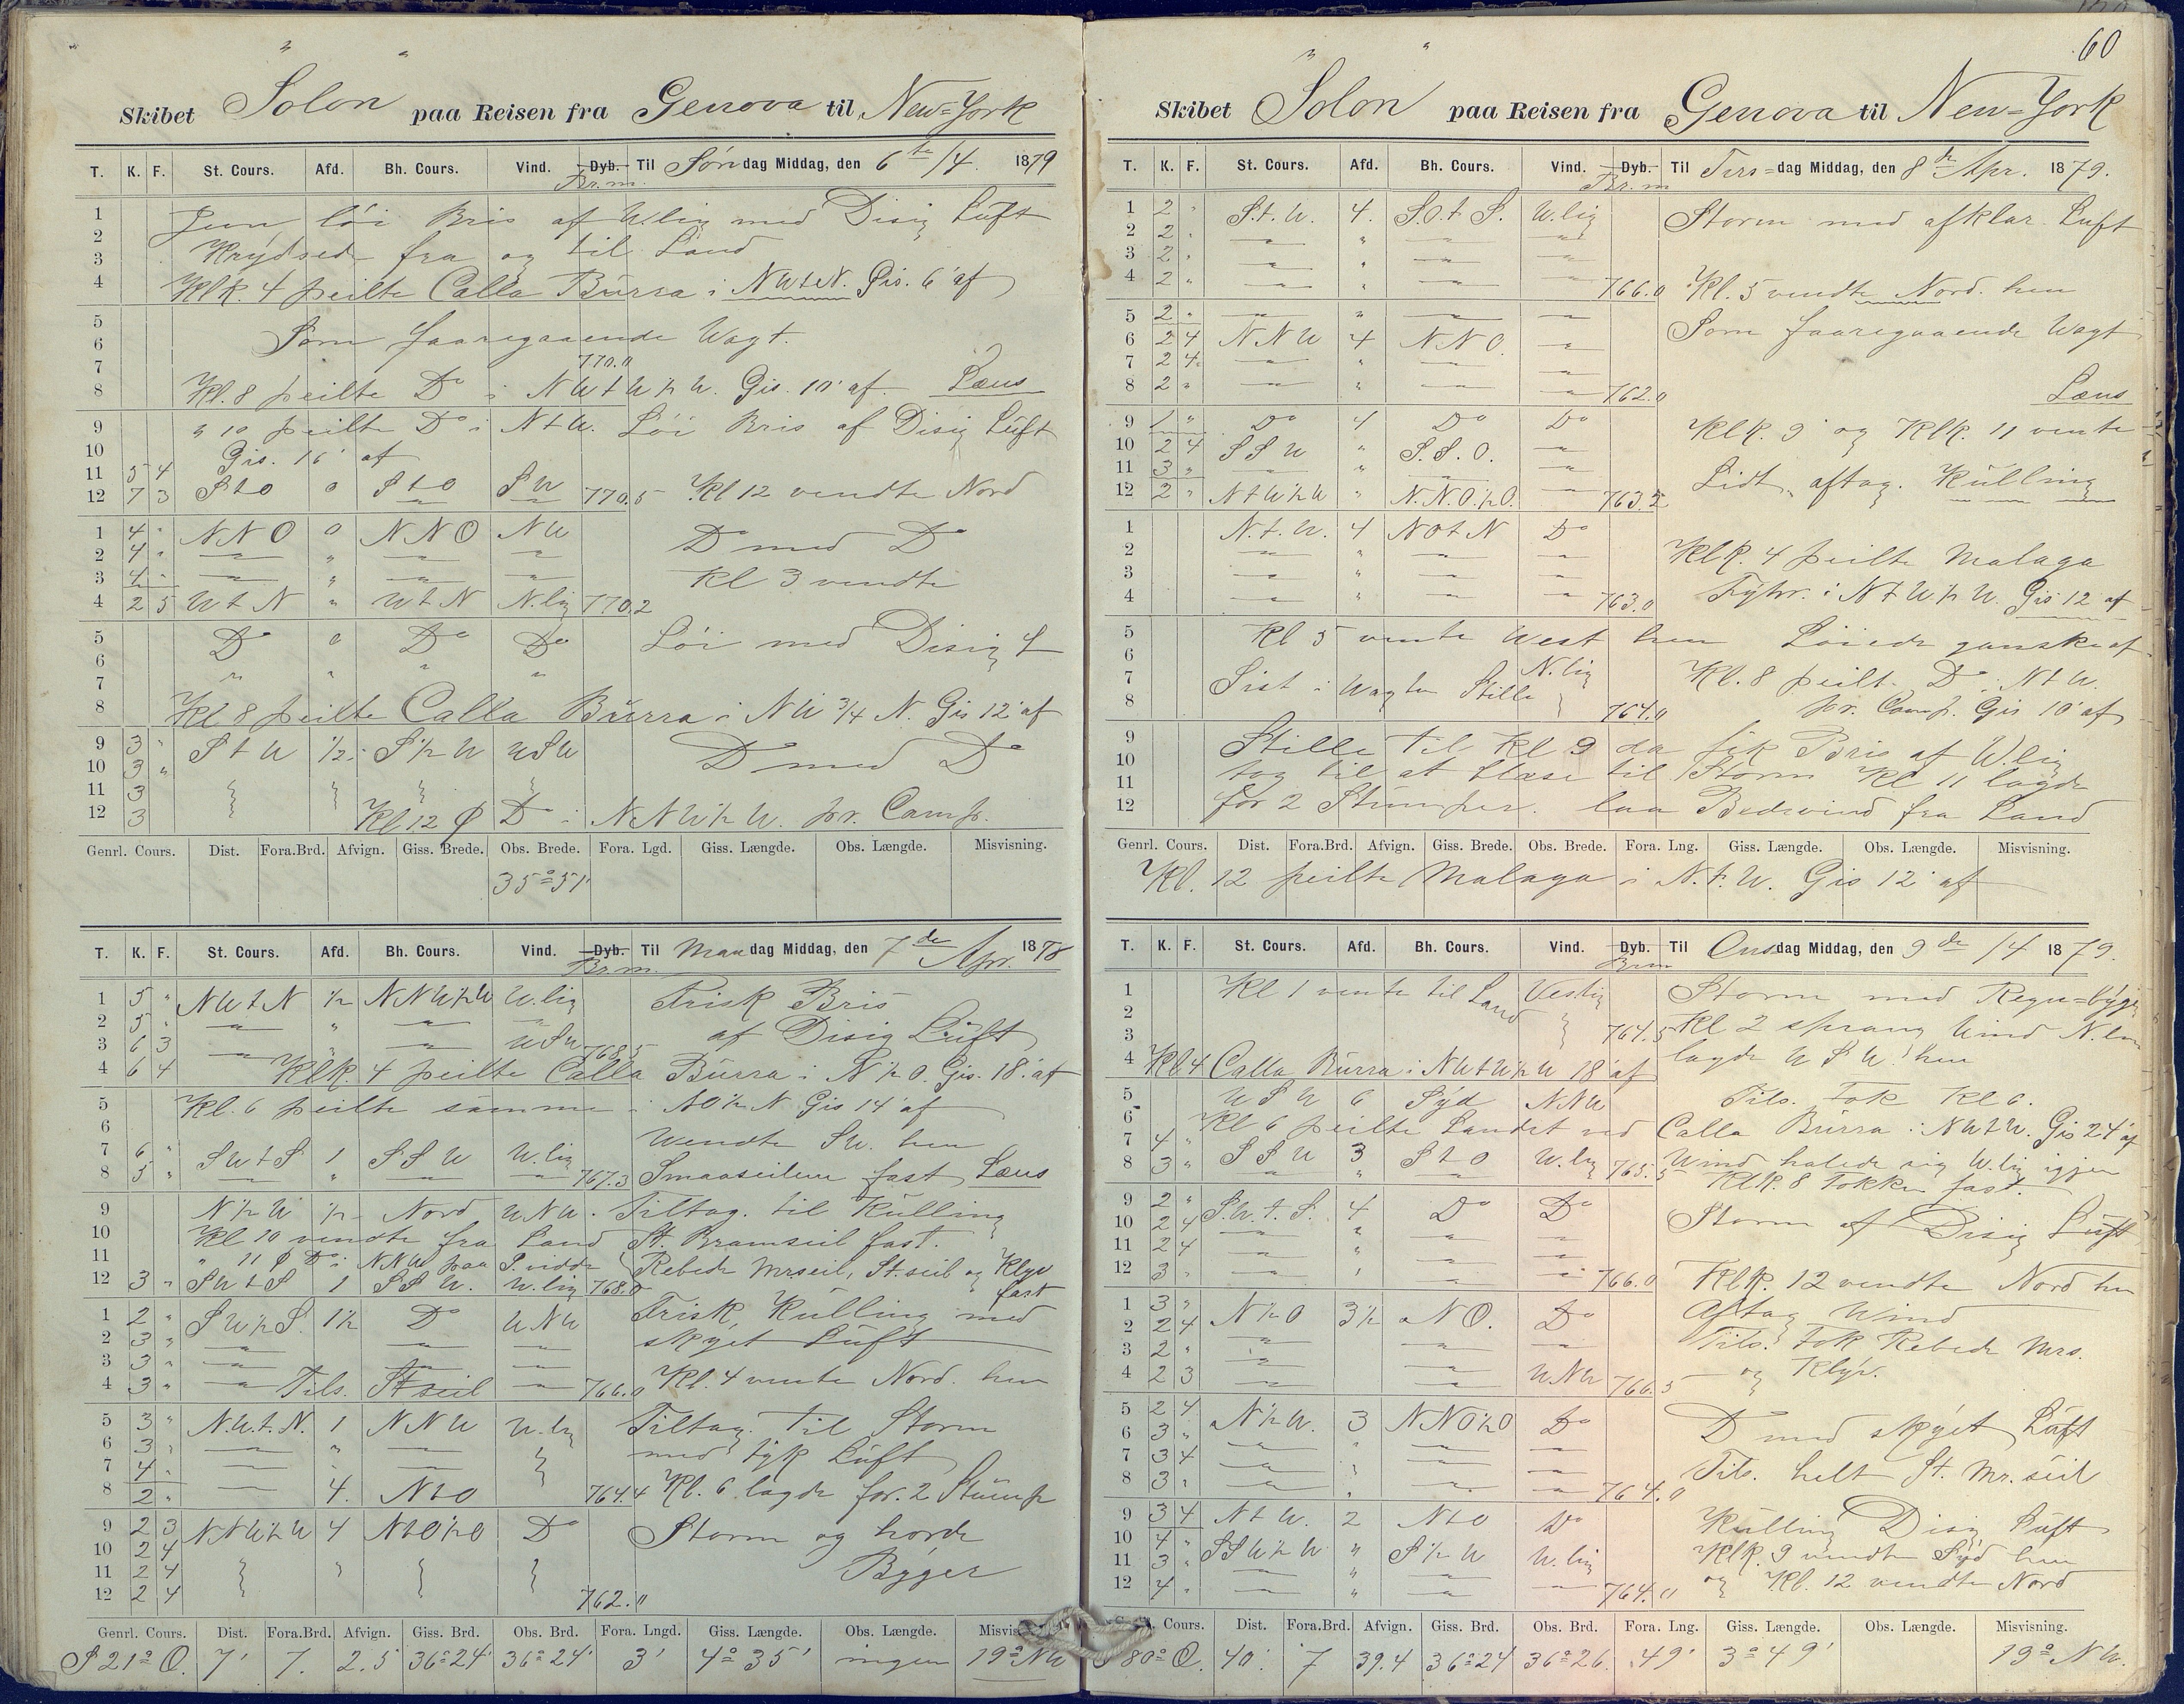 60
Skibet "Solon" paa Reisen fra Genova til New=York
T. K. F. St. Cours. Afd. Bh. Cours. Vind. Dyb. Til Søndag Middag, den 6te/4. 1879
Br.m.
1 Jevn løi Bris af W.lig med Disig Luft
2 Krydsede fra og til Land
3
4 Klk. 4 peilte Calla Burra i NWtN. Gis. 6' af
5 Som foaregaaende Wagt.
6
7 770.0
8 Kl. 8 peilte Do i NWtW½W. Gis. 10' af. Læns
9 " 10 peilte Do i NtW. Løi Bris af Disig Luft
10 Gis. 16' af
11 5 4
12 7 3 StO 0 StO SW 770.5 Kl 12 vendte Nord
1 4 " NNO 0 NNO NW Do med Do
2 4 "
3 4 " Kl 3 vendte
4 2 5 WtN " WtN N.lig 770.2
5 Do 0 Do Do Løi med Disig L
6
7
8 Kl 8 peilte Calla Burra i NW ¾ N. Gis 12' af
9 3 " StW ½ S½W WSW Do med Do
10 3 "
11 3
12 3 Kl 12 Do i NNW½W. pr. Comp.
Genrl. Cours. Dist. Fora.Brd. Afvign. Giss. Brede. Obs. Brede. Fora. Lgd. Giss. Længde. Obs. Længde. Misvisning.
35°51'
T. K. F. St. Cours. Afd. Bh. Cours. Vind. Dyb. Til Mandag Middag, den 7de Apr. 1878
Br.m.
1 5 " NWtN ½ NNW½W W.lig Frisk Bris
2 5 " " af Disig Luft
3 6 3 " WSW 768.5
4 6 4 Klk. 4 peilte Calla Burra i N½O. Gis. 18' af
5 Kl. 6 peilte samme i NO½N Gis 14' af
6
7 6 " SWtS 1 SSW W.lig Wendte SW. hen
8 5 " " 767.3 Smaaseilene fast Læns
9 N½W ½ Nord WNW. Tiltag. til Kulling
10 Kl 10 vendte fra Land St. Bramseil fast.
11 " 11 Do i NNW paa S. vidde Rebede Mrseil, St.seil og Klyv
12 3 " SWtS 1 SSW. W.lig 768.0 fast
1 2 " SW½S. 1½ Do WNW Frisk Kulling med
2 3 " skyet Luft
3 3 "
4 3 " Tils. Stseil 766.0 Kl. 4 vente Nord. hen
5 3 " N.W.t.N. 1 NNW W.lig Tiltag. til Storm
6 3 " " med tyk Luft
7 4 "
8 2 " 4. NtO 764.4 Kl. 6 lagde for. 2 Stump
9 2 3 NNW½W 4 NtO½O Do Storm og haarde
10 2 4 Byger
11 2 4
12 2 4 762.0
Genrl. Cours. Dist. Fora.Brd. Afvign. Giss. Brd. Obs. Brd. Fora. Lngd. Giss. Længde. Obs. Længde. Misvis
S 21° O. 7' 7. 2.5 36°24' 36°24' 3' 4° 35' ingen 19° NW
Skibet "Solon" paa Reisen fra Genova til New=York
T. K. F. St. Cours. Afd. Bh. Cours. Vind. Dyb. Til Tirs=dag Middag, den 8de Apr. 1879.
Br.m
1 2 " S.t.W. 4. S.O.t S. W.lig Storm med afklar. Luft
2 2 "
3 2 "
4 2 " 766.0 Kl. 5 vendte Nord. hen
5 2 " Som foaregaaende Wagt
6 2 4 NNW 4 NNO.
7 2 4
8 2 " 762.0 Læns
9 1 " Do 4 Do Do Klk. 9 og Klk. 11 vente
10 2 4 SSW " S.S.O.
11 3 " Lidt aftag. Kulling
12 2 " NtW½W " N.N.O.½O. 763.2
1 N.t.W. 4 NOtN Do
2 Klk. 4 peilte Malaga
3
4 763.0 Fyhr. i NtW½W. Gis 12' af
5 Kl 5 vente West hen Løiede ganske af
6
7 Sist i Wagten Stille N.lig Kl. 8 peilt. Do i NtW.
8 764.0 pr. Comp. Gis 10' af
9 Stille til Kl 9 da fik Bris af W.lig
10 tog til at blæse til Storm Kl 11 lagde
11 for 2 Stumper. laa Bedevind fra Land
12
Genrl. Cours. Dist. Fora.Brd. Afvign. Giss. Brede. Obs. Brede. Fora. Lng. Giss. Længde. Obs. Længde. Misvisning.
Kl. 12 peilte Malaga i N.t.W. Gis 12' af
T. K. F. St. Cours. Afd. Bh. Cours. Vind. Dyb. Til Onsdag Middag, den 9de/4 1879.
Br.m
1 Kl 1 vente til Land Vestlig Storm med Regn=byge
2
3 764.5 Kl 2 sprang Wind N.
4 Kl 4 Calla Burra i NWtW½W 18' af lagde WSW. hen
5 WSW 6 Syd NNW Tils. Fok Kl 6.
6 Kl 6 peilte Landet ved Calla Burra i NWtW. Gis 24' af
7 4 " SSW 3 StO W.lig Wind halede sig W.lig igjen
8 3 " 765.5 Klk. 8 Fokken fast.
9 2 " S.W.t.S. 4 Do Do Storm af Disig Luft
10 2 4
11 2 4
12 3 " 766.0 Klk. 12 vendte Nord hen
1 3 " N½O 3½ NO. Do Aftag Wind
2 2 4 Tils. Fok Rebede Mrs.
3 2 " og Klyv.
4 2 3 WNW 766.5
5 2 4 N½W. 3 NNO½O Do Do med skyet Luft
6 3 "
7 3 4 Tils. helt St. Mr. seil
8 3 " 764.0
9 3 4 NtW. 2 NtO Do Kulling Disig Luft
10 4 " SSW½W " S½W W.lig Klk. 9 vendte Syd hen
11 3 " og Kl. 12 vendte Nord
12 4 " 764.0
Cours. Dist. Fora.Brd. Afvign. Giss. Brd. Obs. Brd. Fora. Lng. Giss. Længde. Obs. Længde. Misvisning.
80° O. 40' 7 39.4 36°24 36°26. 49' 3° 49' 19° NW.